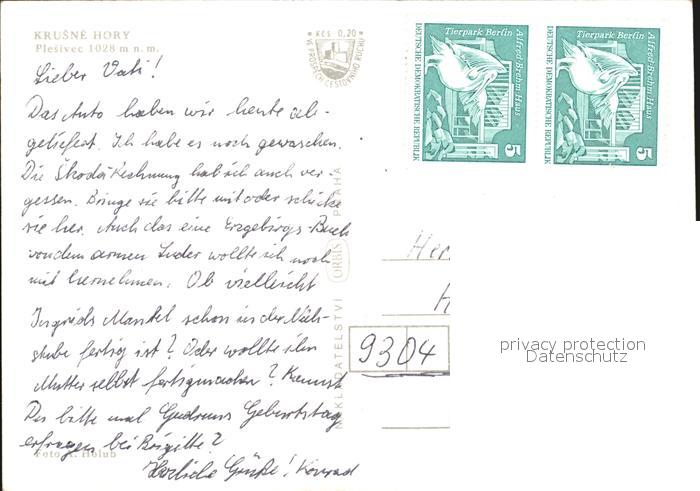 KRUŠNÉ HORY
Plešivec 1028 m n. m.
Lieber Vati!
Das Auto haben wir heute ab-
geliefert. Ich habe es noch gewaschen.
Die Škoda Rechnung hab ich auch ver-
gessen. Bringe sie bitte mit oder schicke
sie her. Auch das eine Erzgebirgs-Buch
von dem armen Luder wollte ich noch
mit hernehmen. Ob vielleicht
Ingrids Mantel schon in der Näh-
stube fertig ist? Oder wollte ihn
Mutter selbst fertigmachen? Kannst
Du bitte mal Gudruns Geburtstag
erfragen bei Brigitte?
Herzliche Grüße! Konrad
Foto A. Holub
Kčs 0,20
VE PROSPĚCH CESTOVNÍHO RUCHU
NAKLADATELSTVÍ ORBIS PRAHA
Tierpark Berlin
Alfred-Brehm-Haus
DEUTSCHE DEMOKRATISCHE REPUBLIK
5
Tierpark Berlin
Alfred-Brehm-Haus
DEUTSCHE DEMOKRATISCHE REPUBLIK
5
Her
9304
privacy protection
Datenschutz